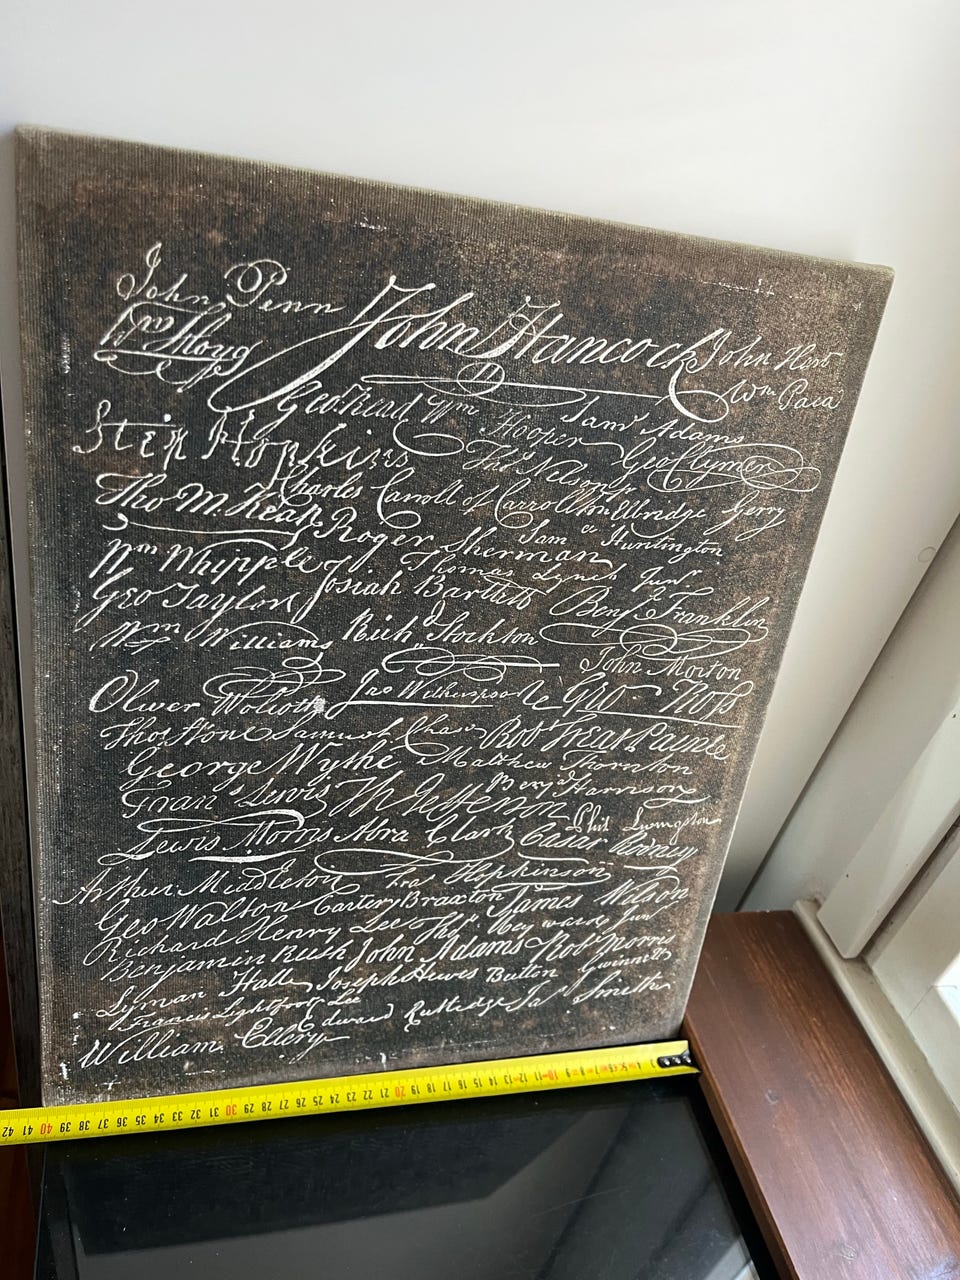 John Penn John Hancock John Hart
Wm Floyd Wm Paca
Geo. Read Wm Hooper Saml Adams
Step Hopkins Thos Nelson jr Geo Clymer
Charles Carroll of Carrollton Elbridge Gerry
Tho M. Kean Roger Sherman Sam el Huntington
Wm Whipple Thomas Lynch Junr
Geo Taylor Josiah Bartlett Benj Franklin
Wm Williams Rich Stockton John Morton
Oliver Wolcott Jno Witherspoon Geo Ross
Thos Stone Samuel Chase Robt Treat Paine
George Wythe Matthew Thornton
Benj Harrison
Frans Lewis Th Jefferson Phil Livingston
Lewis Morris Abra Clark Caesar Rodney
Arthur Middleton Fras Hopkinson
Geo Walton Carter Braxton James Wilson
Richard Henry Lee Thos Heyward Junr
Benjamin Rush John Adams Robt Morris
Lyman Hall Joseph Hewes Button Gwinnett
Francis Lightfoot Lee
Edward Rutledge Jas Smith
William Ellery
42 41 40 39 38 37 36 35 34 33 32 31 30 29 28 27 26 25 24 23 22 21 20 19 18 17 16 15 14 13 12 11 10 9 8 7 6 5 4